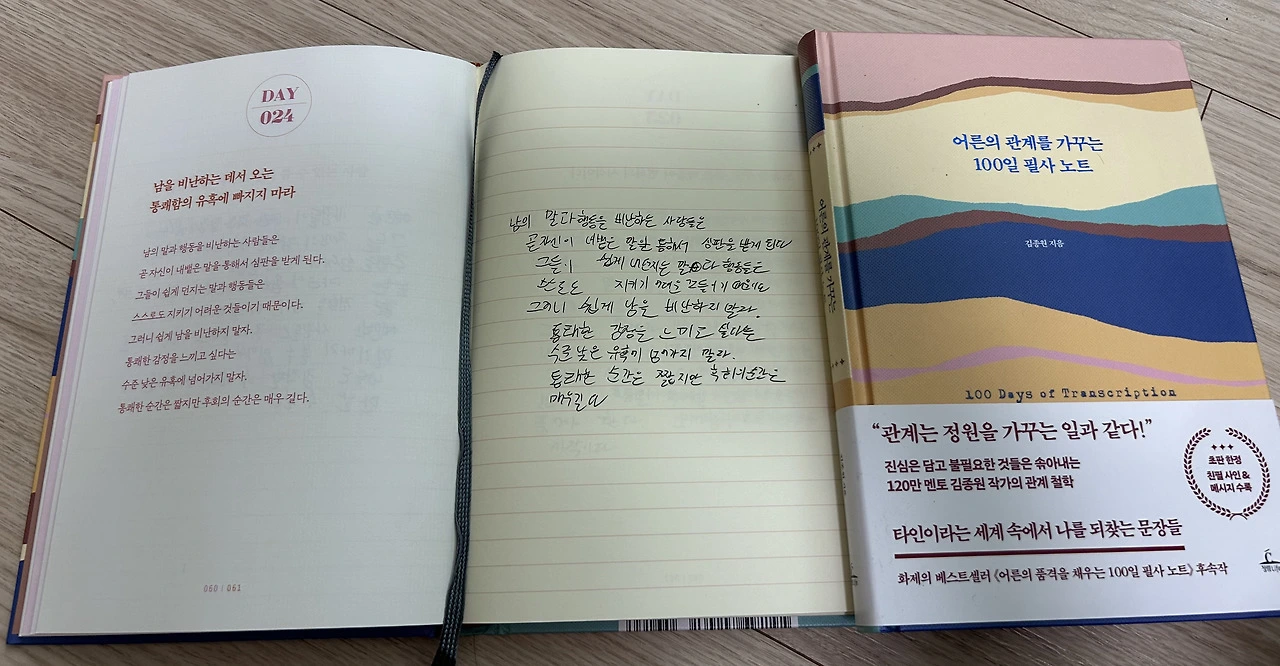 DAY
024
남을 비난하는 데서 오는
통쾌함의 유혹에 빠지지 마라
남의 말과 행동을 비난하는 사람들은
곧 자신이 내뱉은 말을 통해서 심판을 받게 된다.
그들이 쉽게 던지는 말과 행동들은
스스로도 지키기 어려운 것들이기 때문이다.
그러니 쉽게 남을 비난하지 말자.
통쾌한 감정을 느끼고 싶다는
수준 낮은 유혹에 넘어가지 말자.
통쾌한 순간은 짧지만 후회의 순간은 매우 길다.
060 / 061
남의 말과 행동을 비난하는 사람들은
곧 자신이 내뱉은 말을 통해서 심판을 받게 된다
그들이 쉽게 던지는 말과 행동들은
지키기
그러니 쉽게 남을 비난하지 말자.
통쾌한 감정을 느끼고 싶다는
수준 낮은 유혹에 넘어가지 말자.
통쾌한 순간은 짧지만 후회의 순간은
매우 길다
어른의 관계를 가꾸는
어른의 관계를 가꾸는
100일 필사 노트
김종원 지음
100 Days of Transcription
“관계는 정원을 가꾸는 일과 같다!”
진심은 담고 불필요한 것들은 솎아내는
120만 멘토 김종원 작가의 관계 철학
초판 한정
친필 사인 &
메시지 수록
타인이라는 세계 속에서 나를 되찾는 문장들
화제의 베스트셀러 《어른의 품격을 채우는 100일 필사 노트》 후속작